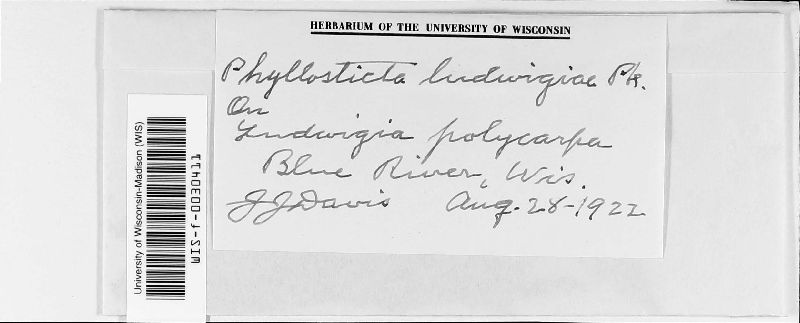 HERBARIUM OF THE UNIVERSITY OF WISCONSIN
Phyllosticta ludwigiae Pk.
On
Ludwigia polycarpa
Blue River, Wis.
J J Davis Aug. 28-1922
University of Wisconsin-Madison (WIS)
WIS-f-0030411